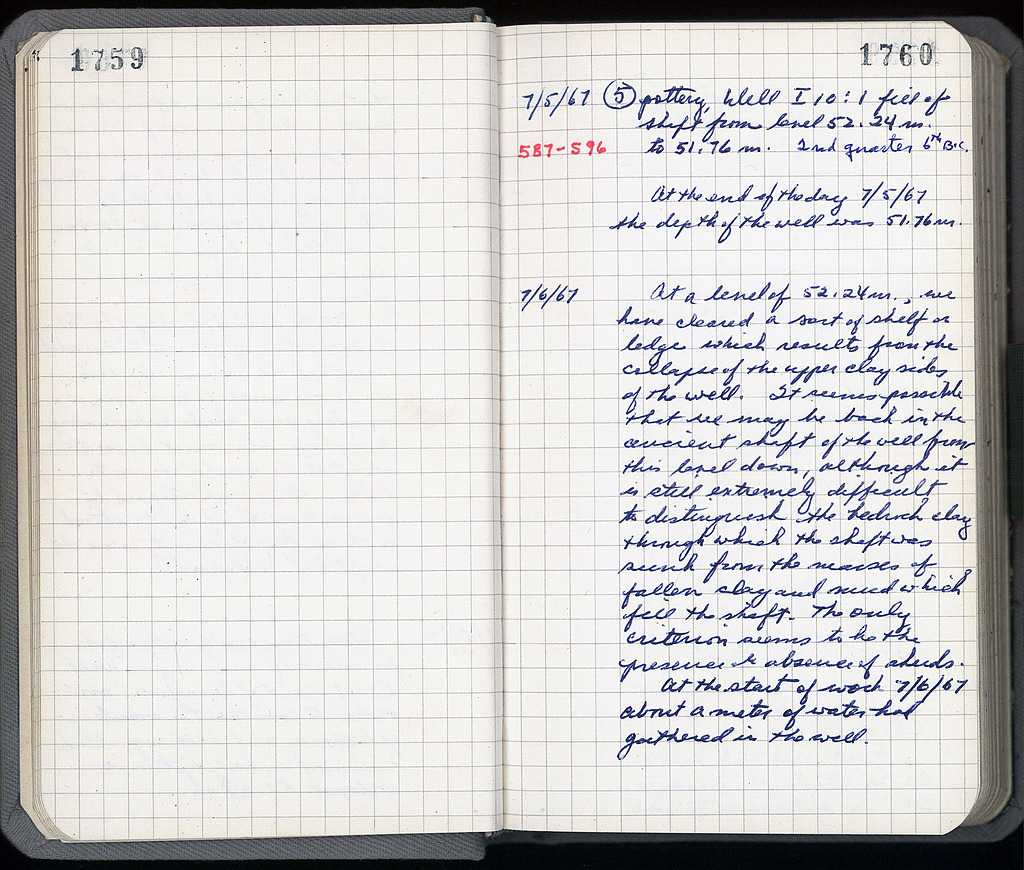 1759
1760
7/5/67 ⑤ pottery, Well I 10:1 fill of
shaft from level 52.24 m.
587-596 to 51.76 m. 2nd quarter 6th B.C.
At the end of the day 7/5/67
the depth of the well was 51.76 m.
7/6/67 At a level of 52.24 m., we
have cleared a sort of shelf or
ledge which results from the
collapse of the upper clay sides
of the well. It seems possible
that we may be back in the
ancient shaft of the well from
this level down, although it
is still extremely difficult
to distinguish the bedrock clay
through which the shaft was
sunk from the masses of
fallen clay and mud which
fill the shaft. The only
criterion seems to be the
presence or absence of sherds.
At the start of work 7/6/67
about a meter of water had
gathered in the well.